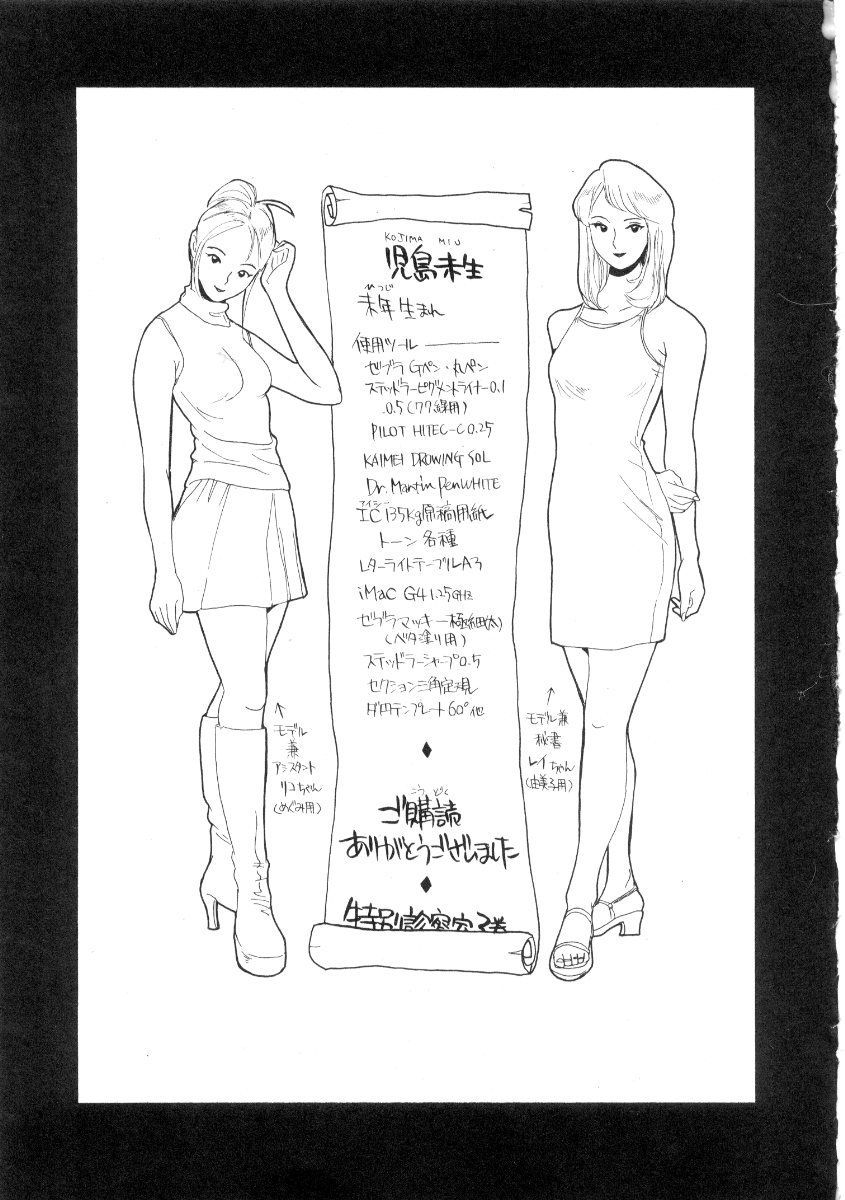 KOJIMA MIU
児島未生
ひつじ
未年生まれ
使用ツール
ゼブラ Gペン・丸ペン
ステッドラーピグメントライナー0.1
0.5(ワク線用)
PILOT HITEC-C 0.25
KAIMEI DROWING SOL
Dr. Martin PenWHITE
アイシー
IC135kg原稿用紙
トーン各種
レターライトテーブルA3
iMac G4 1.25GHz
ゼブラマッキー極細(太)
(ベタ塗り用)
ステッドラーシャープ0.5
セクション三角定規
ダ円テンプレート60°他
こうどく
ご購読
ありがとうございました
特別診察室2巻
↑
モデル
兼
アシスタント
リコちゃん
(めぐみ用)
↑
モデル兼
秘書
レイちゃん
(由美子用)